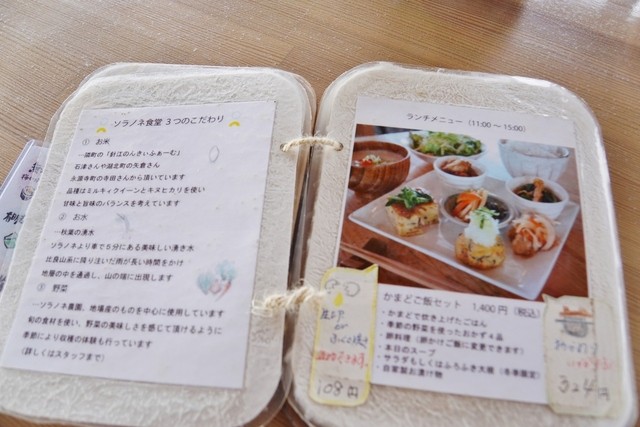 ソラノネ食堂 3つのこだわり
① お米
―饗庭の「針江のんきぃふぁーむ」
石津さんや湖北町の矢倉さん
永源寺町の寺田さんから頂いています
品種はミルキィクイーンとキヌヒカリを使い
甘味と旨味のバランスを考えています
② お水
―秋葉の湧水
ソラノネより車で5分にある美味しい湧き水
比良山系に降り注いだ雨が長い時間をかけ
地層の中を通過し、山の端に出現します
③ 野菜
―ソラノネ農園、地場産のものを中心に使用しています
旬の食材を使い、野菜の美味しさを感じて頂けるように
季節により収穫の体験も行っています
(詳しくはスタッフまで)
ランチメニュー (11:00～15:00)
かまどご飯セット 1,400円 (税込)
・かまどで炊き上げたごはん
・季節の野菜を使ったおかず4品
・卵料理 (卵かけご飯に変更できます)
・本日のスープ
・サラダもしくはふろふき大根 (冬季限定)
・自家製お漬け物
108円
324円